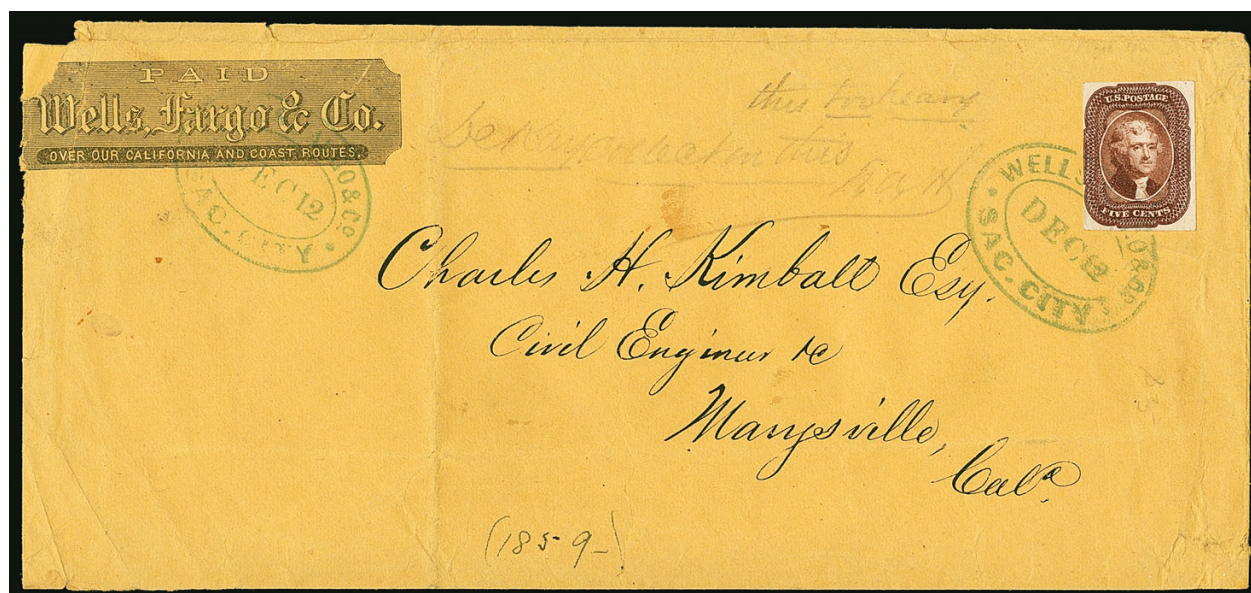 PAID
Wells, Fargo & Co.
OVER OUR CALIFORNIA AND COAST ROUTES.
O & Co.
DEC 12
SAC. CITY
this
this
U.S. POSTAGE
FIVE CENTS
WELLS O & Co.
DEC 12
SAC. CITY
Charles H. Kimball Esq.
Civil Engineer &c
Marysville,
Cala
(1859-)